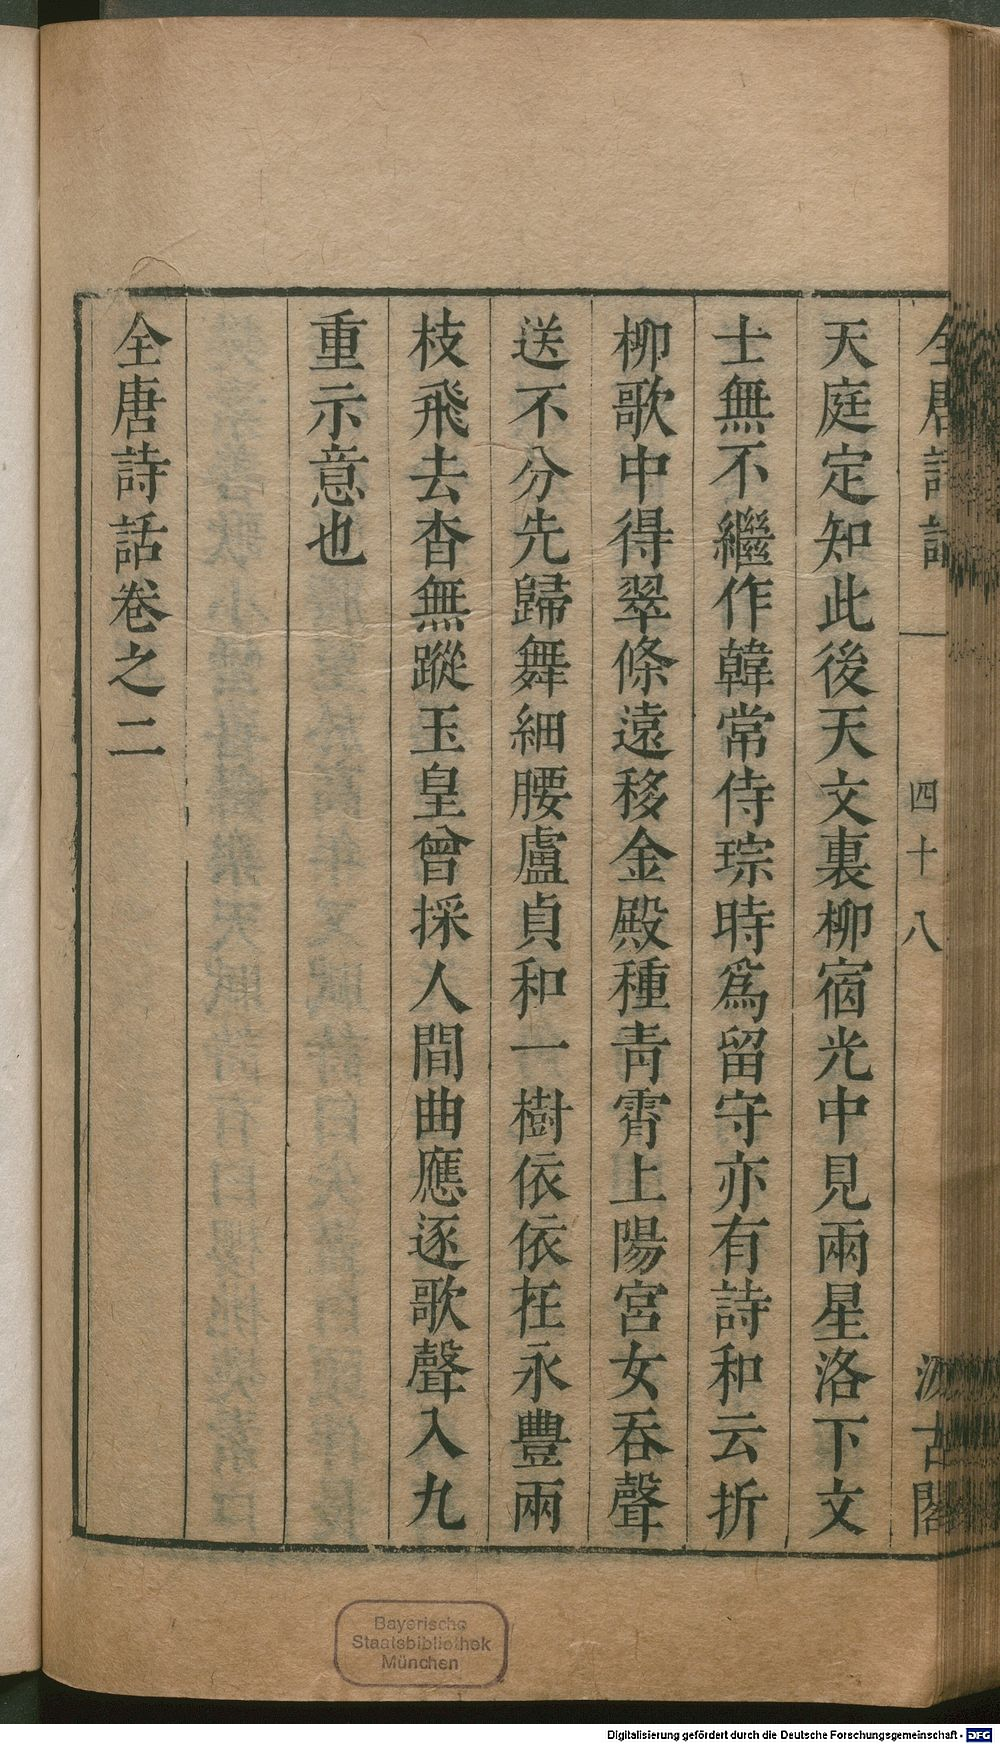 全唐詩話 四十八 汲古閣
天庭定知此後天文裏柳宿光中見兩星洛下文
士無不繼作韓常侍琮時爲留守亦有詩和云折
柳歌中得翠條遠移金殿種青霄上陽宮女吞聲
送不分先歸舞細腰盧貞和一樹依依在永豐兩
枝飛去杳無蹤玉皇曾採人間曲應逐歌聲入九
重示意也
全唐詩話卷之二
Bayerische
Staatsbibliothek
München
Digitalisierung gefördert durch die Deutsche Forschungsgemeinschaft - DFG